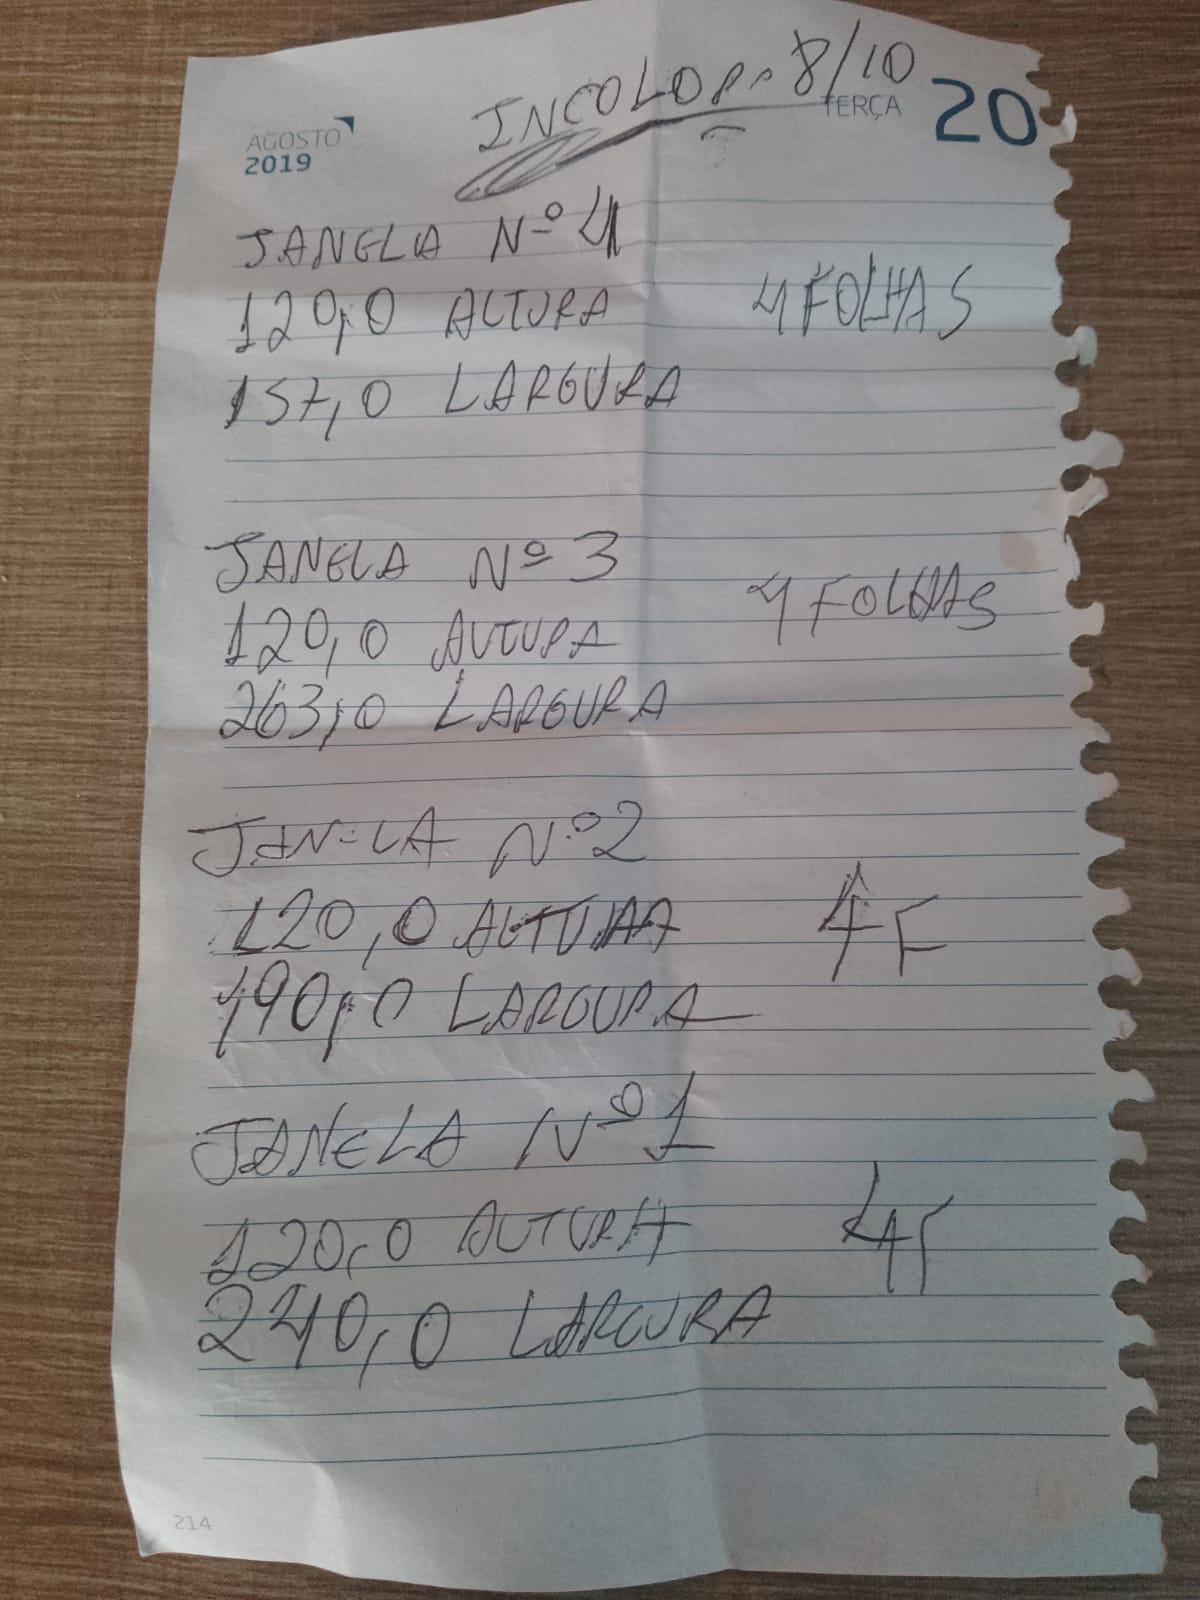 INCOLOR 8/10
AGOSTO
2019
TERÇA 20
JANELA Nº 4
120,0 ALTURA
4 FOLHAS
157,0 LARGURA
JANELA Nº 3
4 FOLHAS
120,0 ALTURA
263,0 LARGURA
JANELA Nº 2
120,0 ALTURA
4F
190,0 LARGURA
JANELA Nº 1
120,0 ALTURA
4F
240,0 LARGURA
214